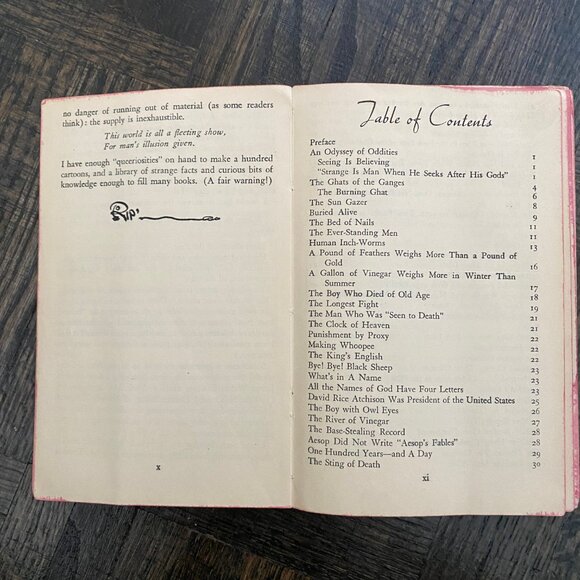 no danger of running out of material (as some readers
think): the supply is inexhaustible.
This world is all a fleeting show,
For man's illusion given.
I have enough "queeriosities" on hand to make a hundred
cartoons, and a library of strange facts and curious bits of
knowledge enough to fill many books. (A fair warning!)
RIP'
x
Table of Contents
Preface
An Odyssey of Oddities 1
Seeing Is Believing 1
"Strange Is Man When He Seeks After His Gods" 1
The Ghats of the Ganges 4
The Burning Ghat 6
The Sun Gazer 8
Buried Alive 9
The Bed of Nails 11
The Ever-Standing Men 11
Human Inch-Worms 13
A Pound of Feathers Weighs More Than a Pound of
Gold 16
A Gallon of Vinegar Weighs More in Winter Than
Summer 17
The Boy Who Died of Old Age 18
The Longest Fight 19
The Man Who Was "Seen to Death" 21
The Clock of Heaven 21
Punishment by Proxy 22
Making Whoopee 22
The King's English 22
Bye! Bye! Black Sheep 23
What's in A Name 23
All the Names of God Have Four Letters 23
David Rice Atchison Was President of the United States 25
The Boy with Owl Eyes 26
The River of Vinegar 27
The Base-Stealing Record 28
Aesop Did Not Write "Aesop's Fables" 28
One Hundred Years—and A Day 29
The Sting of Death 30
xi